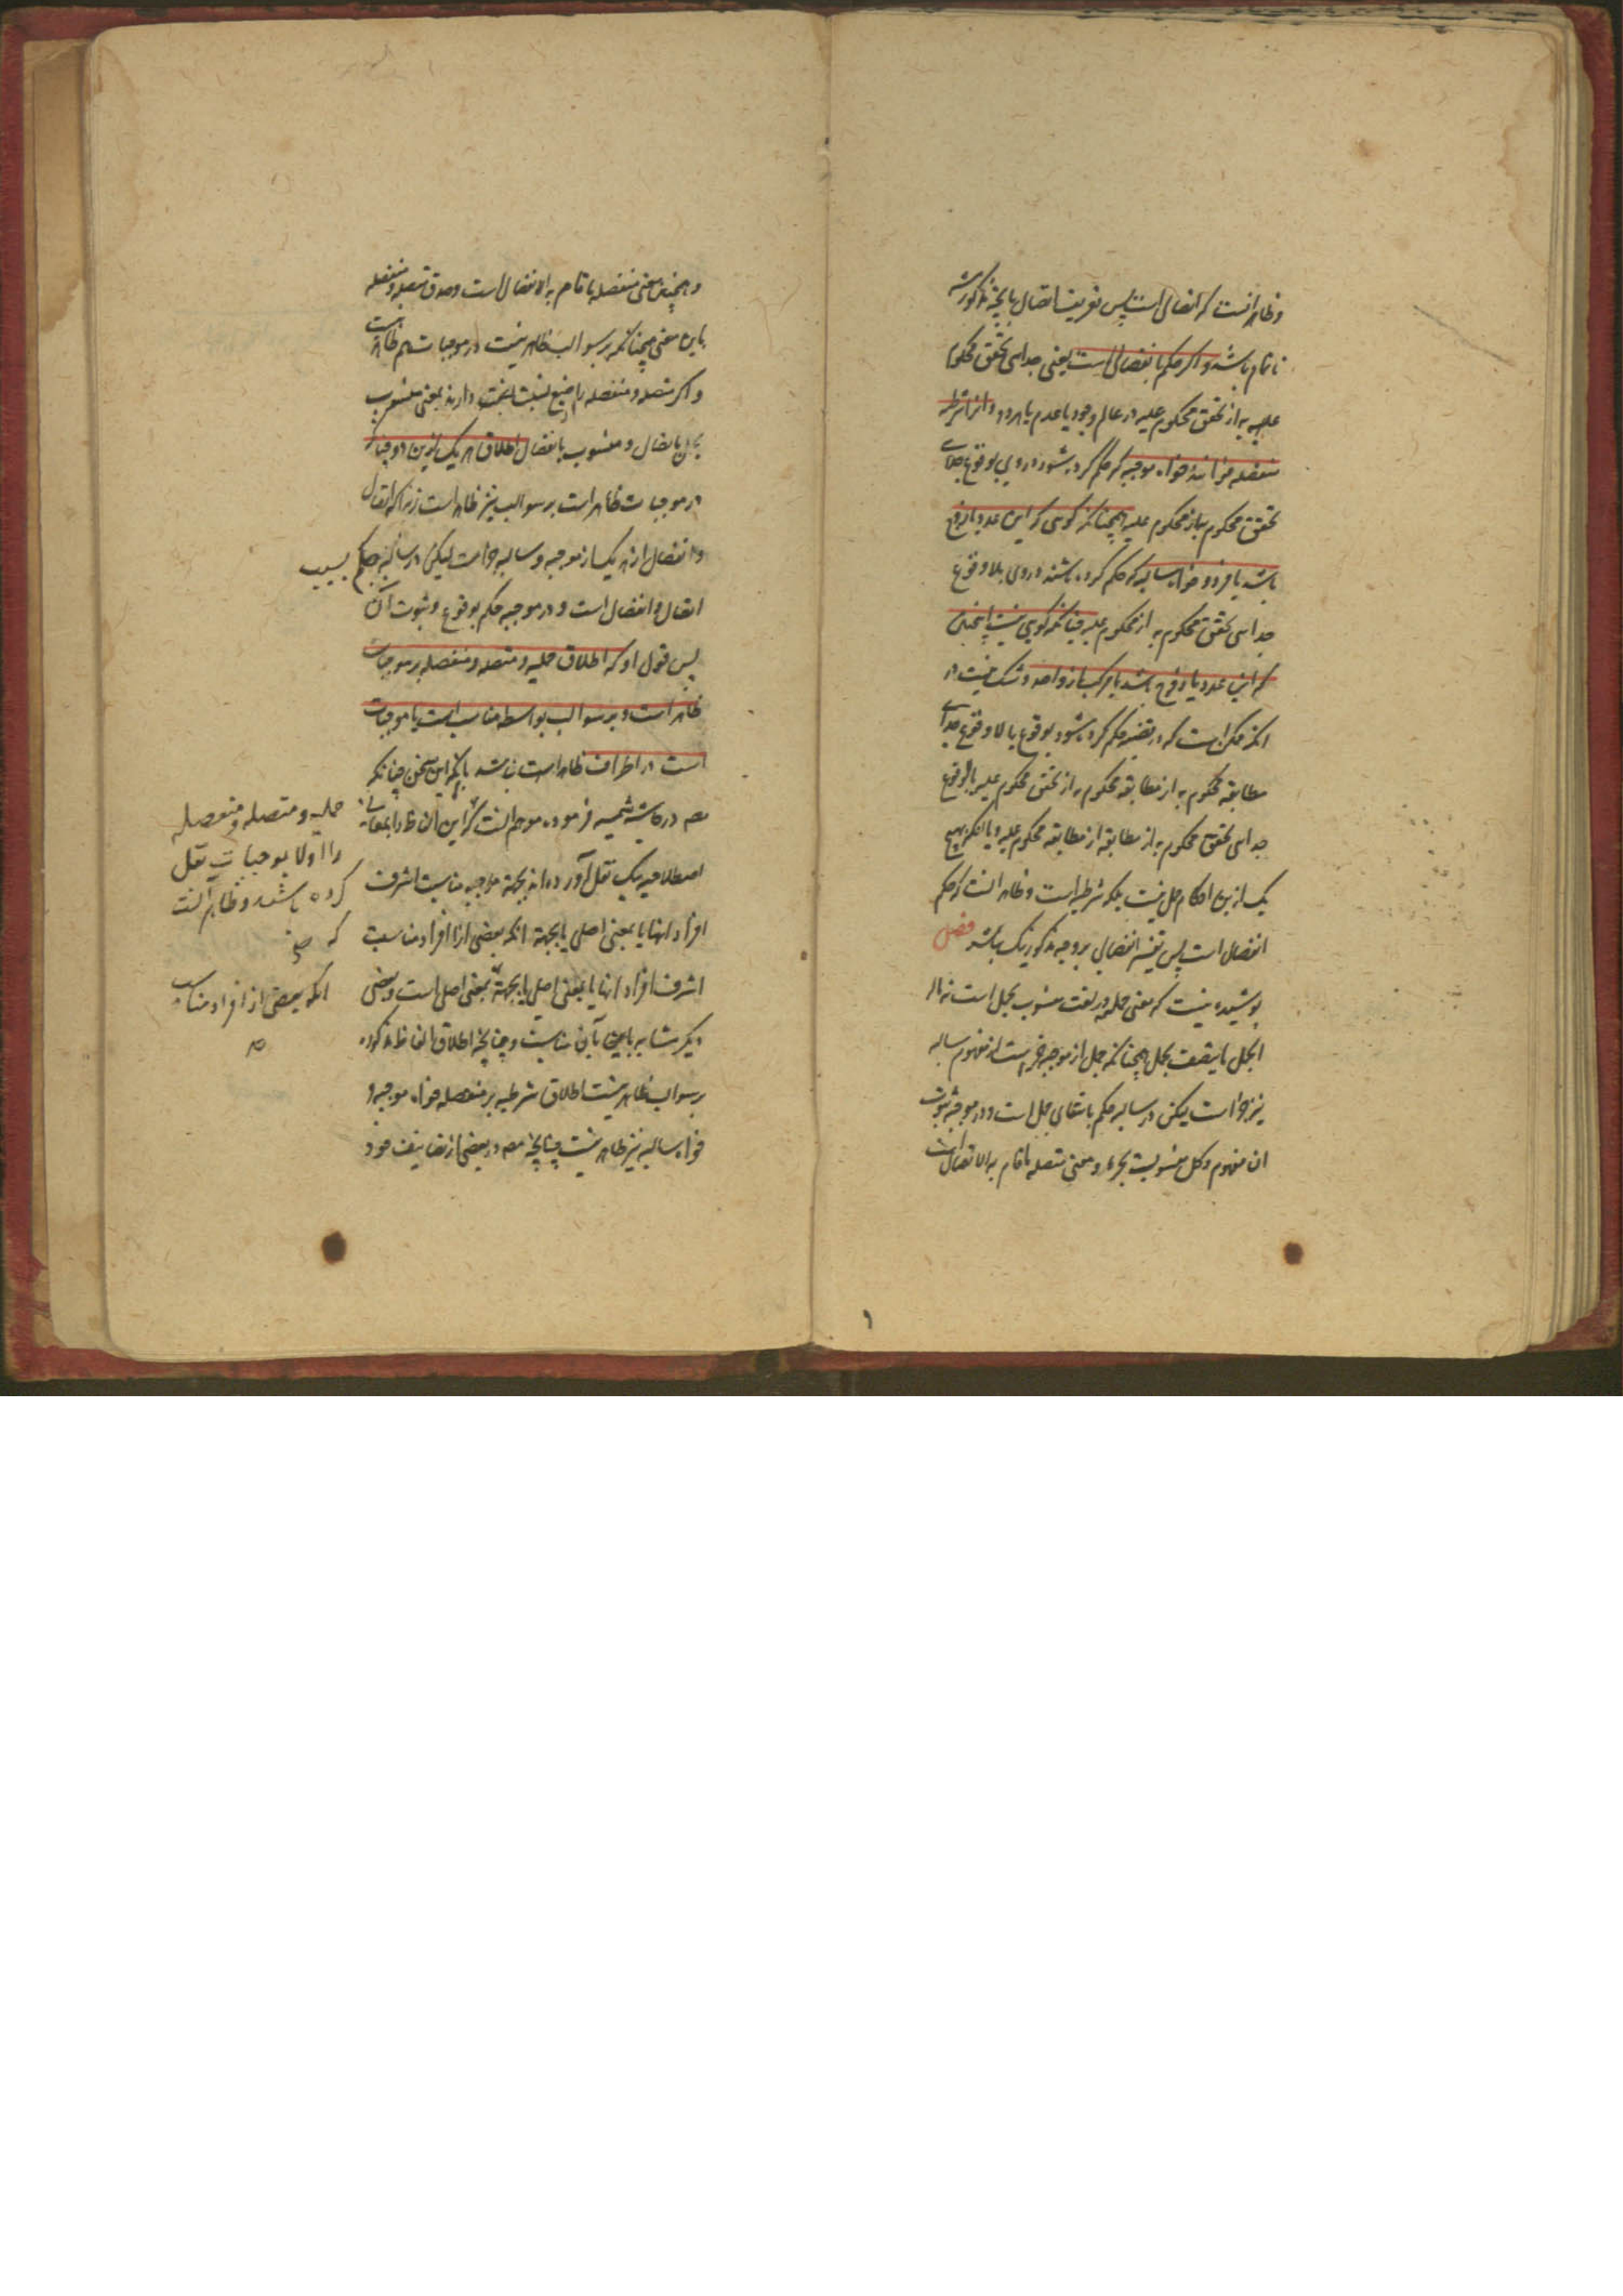 و ظاهر انست که اتصالی است پس تعریف اتصال بآنچه مذکور شد
ناتمام باشد و اگر حکم بانفصالی است یعنی جدایی تحقق محکوم
علیه به از تحقق محکوم علیه در عالم وجود یا عدم یا هر دو و انرا شرطیه
منفصله خوانند خواه موجبه که حکم کرده شود در وی بوقوع جدایی
تحقق محکوم به از محکوم علیه همچنانکه کویی که این عدد یا زوج
باشد یا فرد و خواه سالبه که حکم کرده باشند در وی بلا وقوع
جدایی تحقق محکوم به از محکوم علیه چنانکه کویی نیست اینچنین
که این عدد یا زوج باشد یا مرکب از واحد و شک نیست در
انکه ممکن است که در قضیه حکم کرده شود بوقوع یا لا وقوع جدایی
مطابقه محکوم به از مطابقه محکوم به از تحقق محکوم علیه یا بوقوع
جدایی تحقق محکوم به از مطابقه از مطابقه محکوم علیه و یا انکه هیچ
یک ازین احکام حمل نیست بلکه شرطیه است و ظاهر انست که حکم
انفصال است پس تفسیر انفصالی بر وجه مذکور نیک نباشد فصل
پوشیده نیست که معنی حملیه در لغت منسوب بحمل است نه ماله
الحمل یا یتصف بحمل همچنانکه حمل از موجبه جزء است از مفهوم سالبه
نیز جزء است لیکن در سالبه حکم بانتفای حمل است و در موجبه ثبوت
ان مفهوم و کل منسوبست بجزء و معنی متصله ما قام به الاتصال است
و همچنین معنی منفصله ما قام به الانفصال است و صدق متصله و منفصله
باین معنی همچنانکه بر سوالب ظاهر نیست در موجبات هم ظاهر نیست
و اگر متصله و منفصله را صیغ نسبت دارند بمعنی منسوب
باتصال و منسوب بانفصال اطلاق هر یک ازین دو چنانکه
در موجبات ظاهر است بر سوالب نیز ظاهر است زیرا که اتصال
و انفصال از هر یک از موجبه و سالبه جزء است لیکن در سالبه حکم بسلب
اتصال و انفصال است و در موجبه حکم بوقوع و ثبوت آن
پس قول او که اطلاق حملیه و متصله و منفصله بر موجبات
ظاهر است و بر سوالب بواسطه مناسبت با موجبات
است در اطراف ظاهر است نباشد بانکه این سخن چنانکه
مصه در حاشیه شمسیه فرموده موهم انست که این الفاظ را بمعانی
اصطلاحیه یک نقل آورده اند بجهة موجبه مناسبت اشرف
افراد انها با بمعنی اصلی یا بجهة انکه بعضی از افراد مناسبت
اشرف افراد انها با معنی اصلی یا بجهة بمعنی اصلی است و بعضی
دیگر مشابه باین بآن مناسبت و چنانچه اطلاق الفاظ مذکوره
بر سوالب ظاهر نیست اطلاق شرطیه بر منفصله خواه موجبه و
خواه سالبه نیز ظاهر نیست چنانچه مصه در بعضی از تصانیف خود
حملیه و متصله و منفصله
را اولا بموجبات نقل
کرده باشند و ظاهر آنست
که
انکه بعضی از افراد مناسب